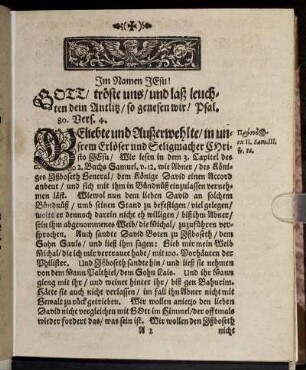 Im Namen JEsu!
GOTT/ tröste uns/ und laß leuch-
ten dein Antlitz/ so genesen wir/ Psal.
80. Vers. 4.
Geliebte und Außerwehlte/ in un-
serm Erlöser und Seligmacher CHri-
sto JEsu/ Wir lesen in dem 3. Capitel des
2. Buchs Samuel, v. 12. wie Abner/ des Köni-
ges Isboseth General/ dem Könige David einen Accord
anbeut/ und sich mit ihm in Bündnüß einzulassen verneh-
men läst. Wiewol nun dem lieben David an solchem
Bündnüß/ und seinen Staat zu befestigen/ viel gelegen/
wolte er dennoch darein nicht eh willigen/ biß ihm Abner/
sein ihm abgenommenes Weib/ die Michal/ zu zuführen ver-
sprochen. Auch sandte David Boten zu Isboseth/ dem
Sohn Sauls/ und ließ ihm sagen: Gib mir mein Weib
Michal/ die ich mir vertrauet habe/ mit 100. Vorhäuten der
Philister. Und Isboseth sandte hin/ und ließ sie nehmen
von dem Mann Palthiel/ dem Sohn Lais. Und ihr Mann
gieng mit ihr/ und weinet hinter ihr/ biß gen Bahurim.
Hätte sie auch nicht verlassen/ im fall ihn Abner nicht mit
Gewalt zu rück getrieben. Wir wollen anietzo den lieben
David nicht vergleichen mit GOtt im Himmel/ der offtmals
wieder fordert das/ was sein ist. Wir wollen den Isboseth
A 2 nicht
ex II. Sam. III.